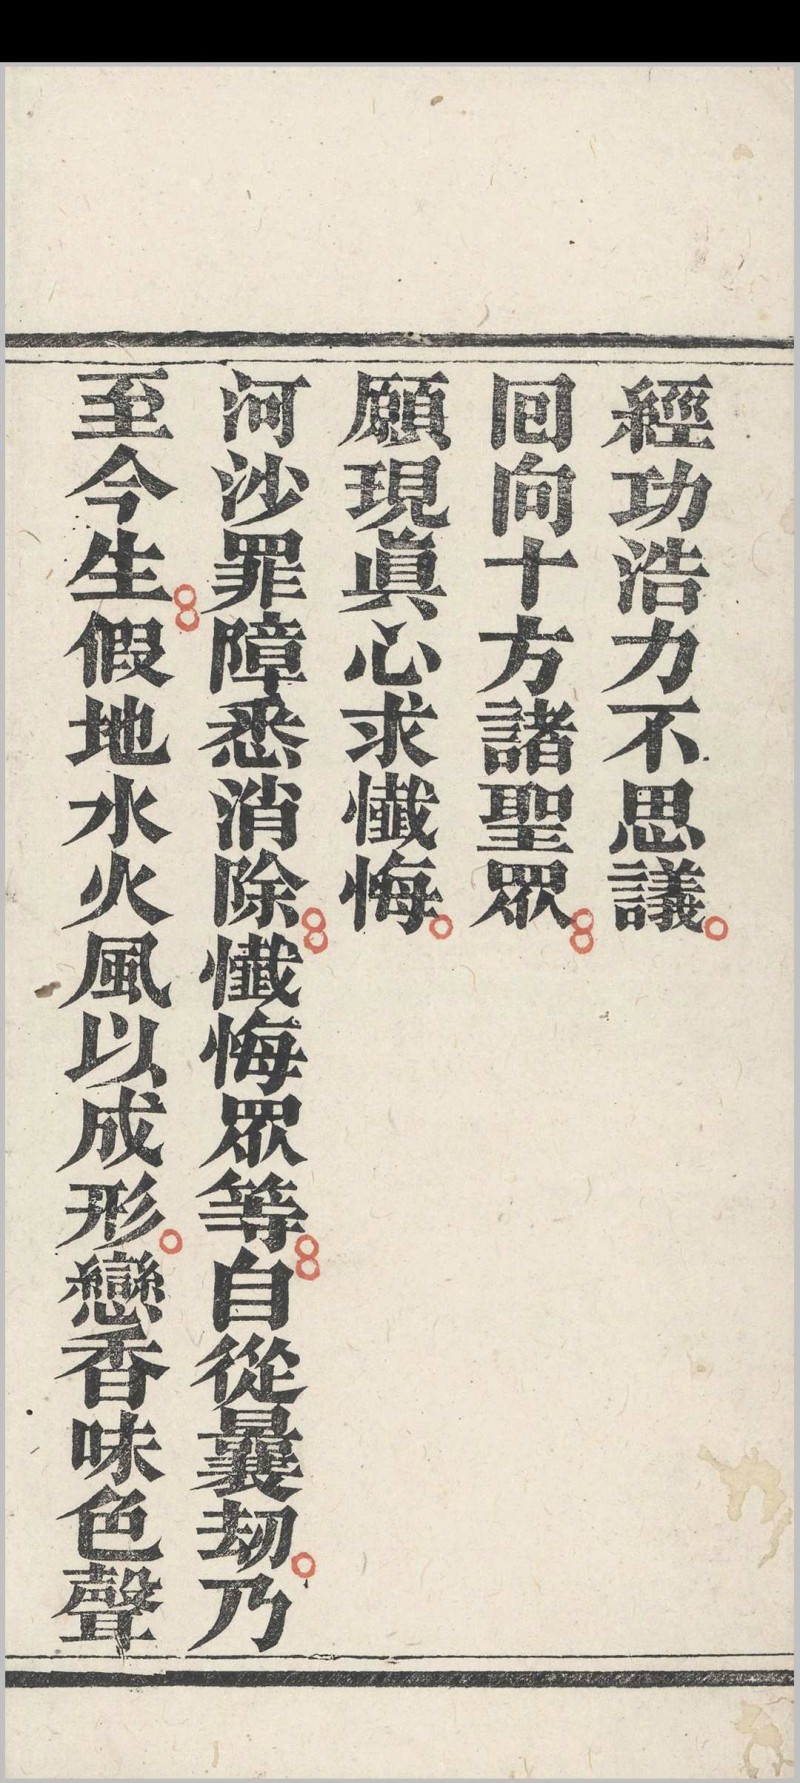 經功浩力不思議
回向十方諸聖眾
願現眞心求懺悔
河沙罪障悉消除懺悔眾等自從曩刼乃
至今生假地水火風以成形戀香味色聲